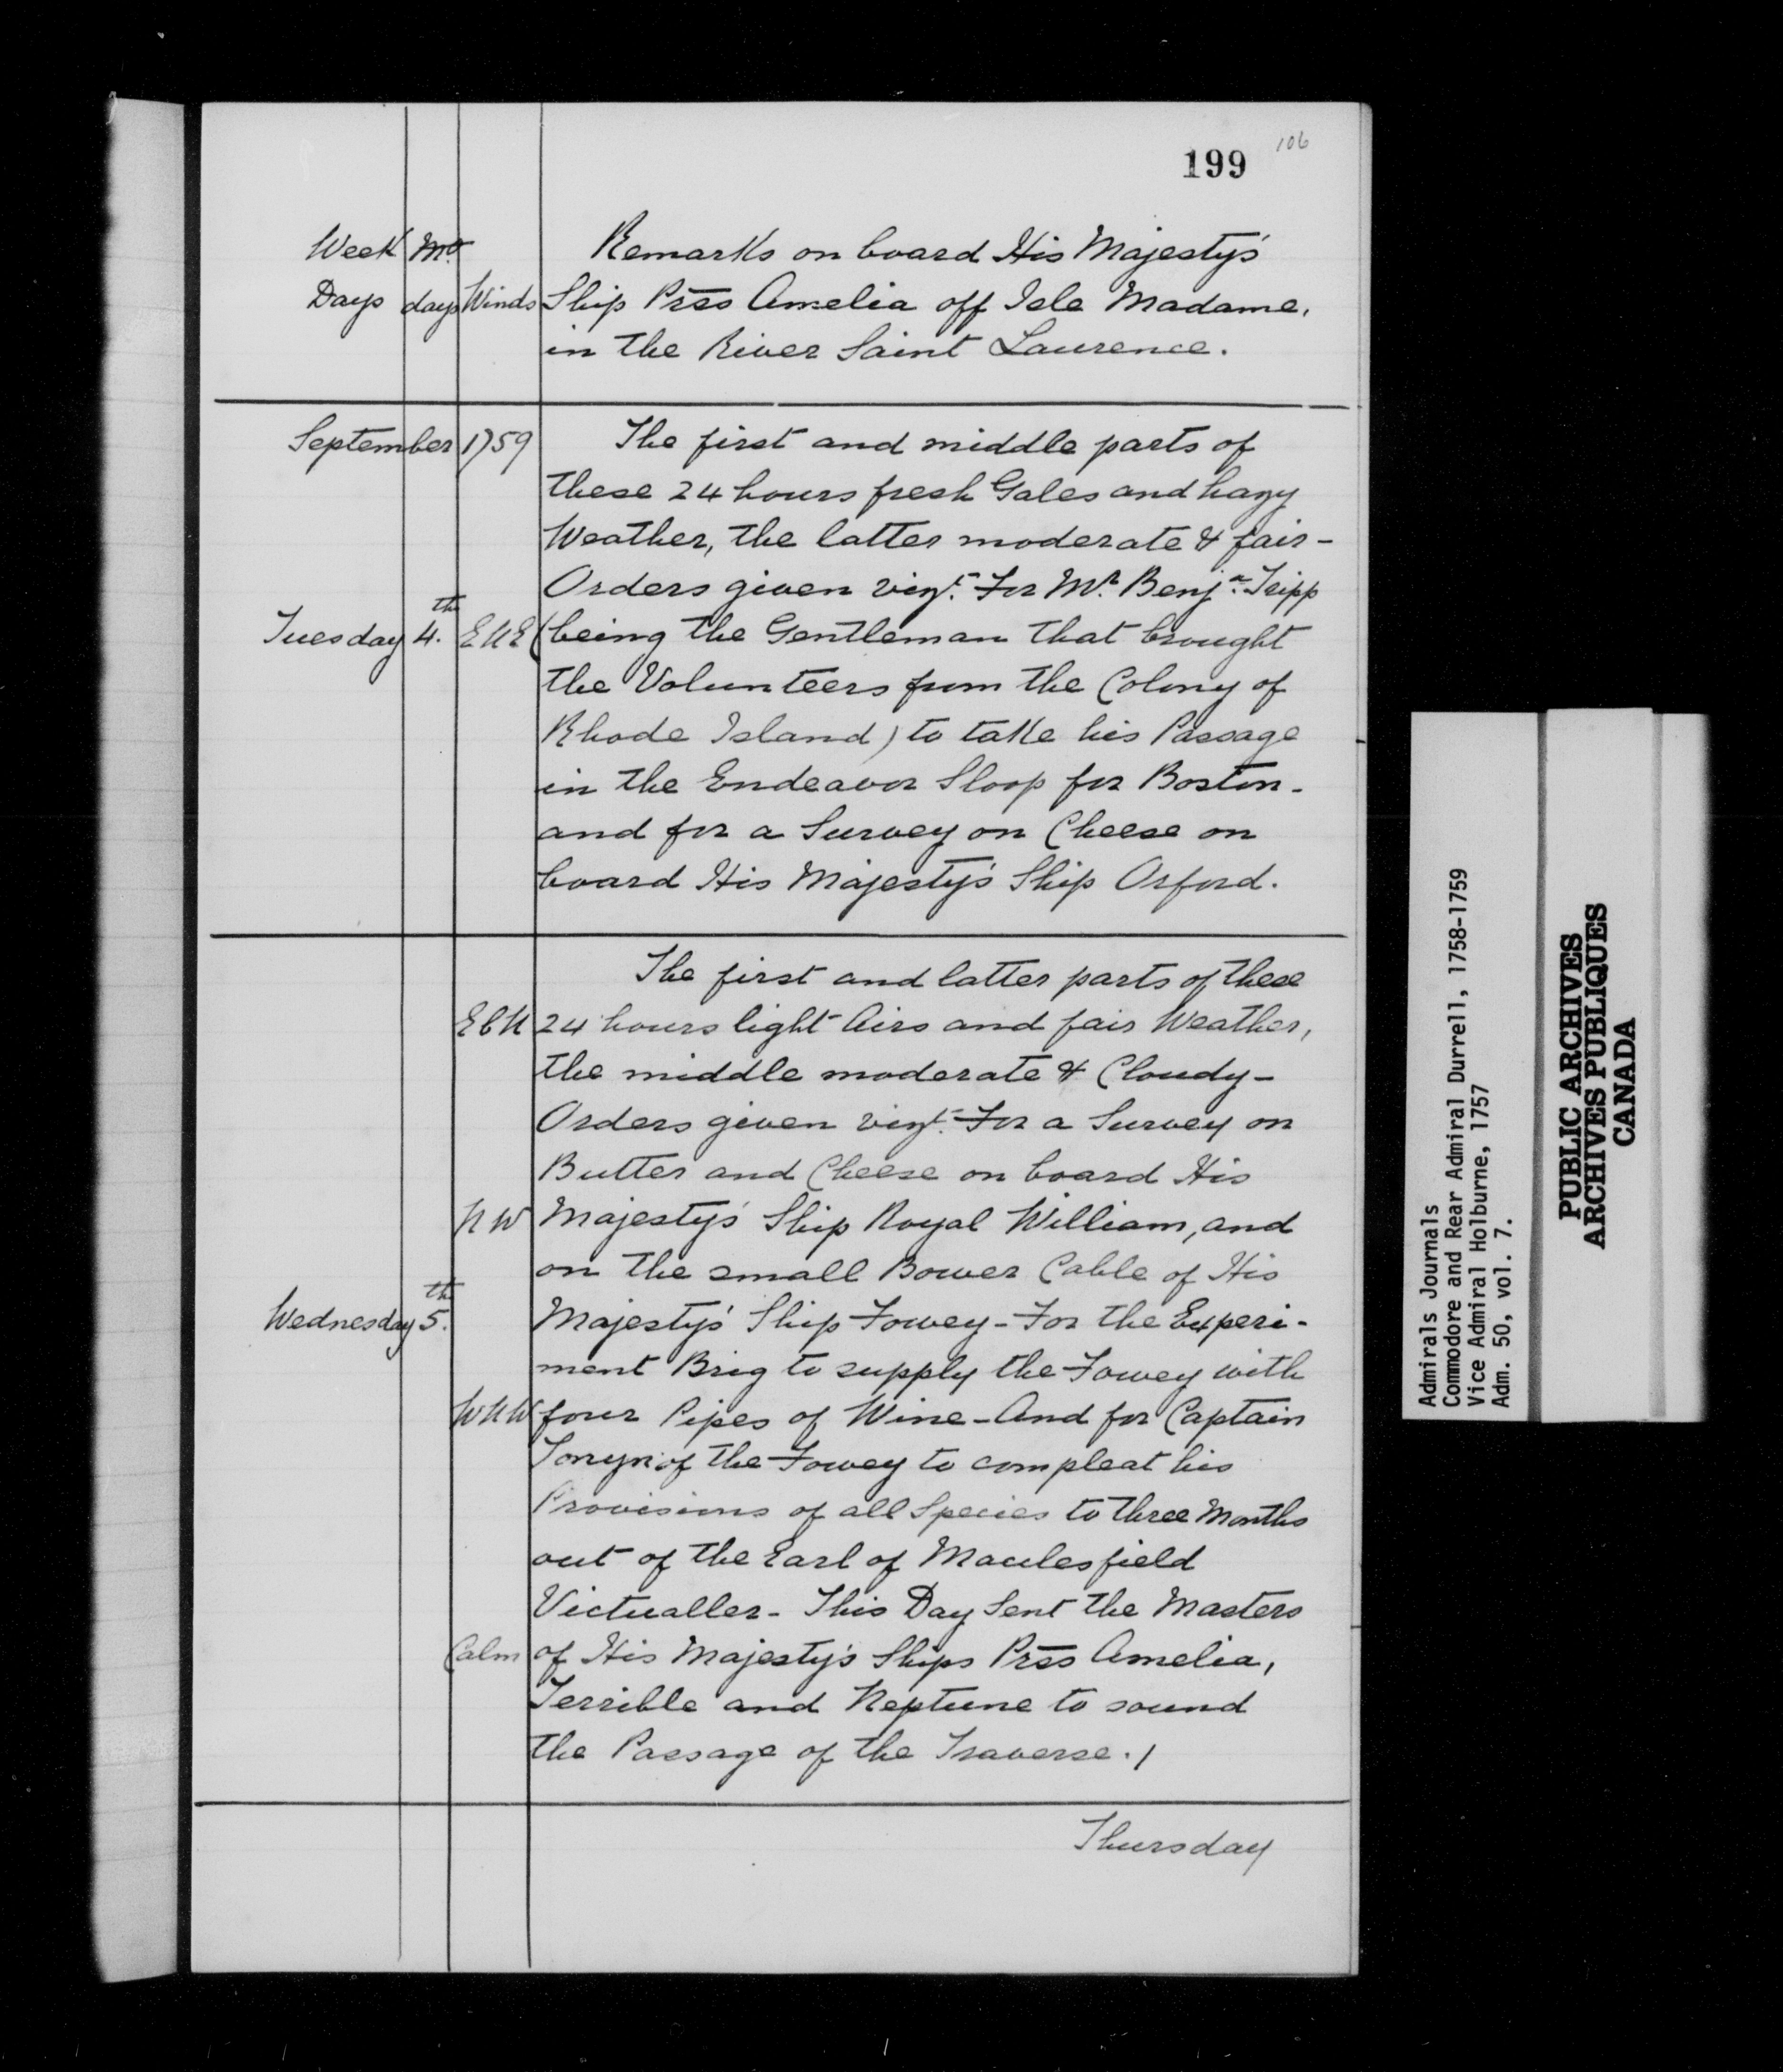 199 106
Week Mo. Remarks on board His Majesty's
Days days Winds Ship Prss Amelia off Isle Madame,
in the River Saint Laurence.
September 1759 The first and middle parts of
these 24 hours fresh Gales and hazy
Weather, the latter moderate & fair-
Orders given vizt. For Mr. Benjn. Tripp
Tuesday 4.th ENE (being the Gentleman that brought
the Volunteers from the Colony of
Rhode Island) to take his Passage
in the Endeavor Sloop for Boston-
and for a Survey on Cheese on
board His Majesty's Ship Orford.
The first and latter parts of these
EbN 24 hours light Airs and fair Weather,
the middle moderate & Cloudy-
Orders given vizt. For a Survey on
Butter and Cheese on board His
NW Majesty's Ship Royal William, and
on the small Bower Cable of His
Wednesday 5.th Majesty's Ship Fowey - For the Experi-
ment Brig to supply the Fowey with
WNW four Pipes of Wine - And for Captain
Tonyn of the Fowey to compleat his
Provisions of all Species to three Months
out of the Earl of Maculesfield
Victualler - This Day Sent the Masters
Calm of His Majesty's Ships Prss Amelia,
Terrible and Neptune to sound
the Passage of the Traverse./
Thursday
Admirals Journals
Commodore and Rear Admiral Durrell, 1758-1759
Vice Admiral Holburne, 1757
Adm. 50, vol. 7.
PUBLIC ARCHIVES
ARCHIVES PUBLIQUES
CANADA